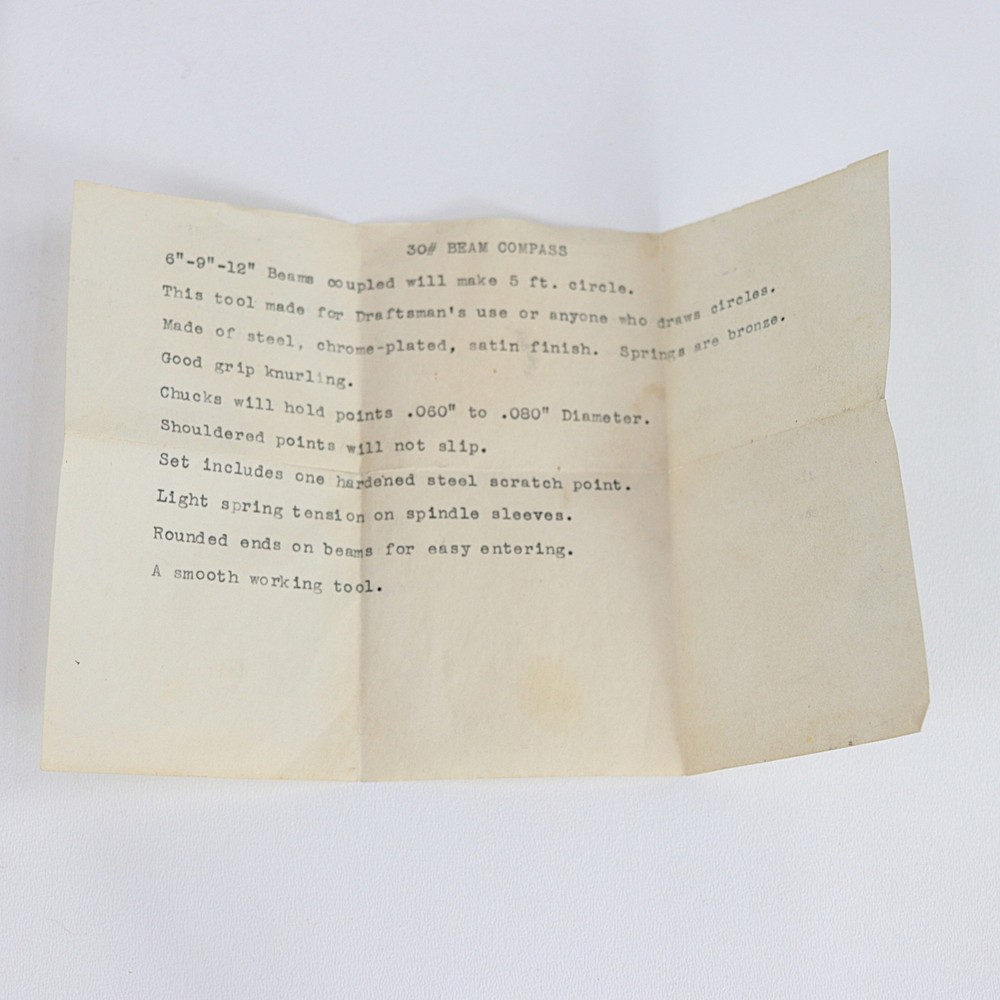 30# BEAM COMPASS
6"-9"-12" Beams coupled will make 5 ft. circle.
This tool made for Draftsman's use or anyone who draws circles.
Made of steel, chrome-plated, satin finish. Springs are bronze.
Good grip knurling.
Chucks will hold points .060" to .080" Diameter.
Shouldered points will not slip.
Set includes one hardened steel scratch point.
Light spring tension on spindle sleeves.
Rounded ends on beams for easy entering.
A smooth working tool.